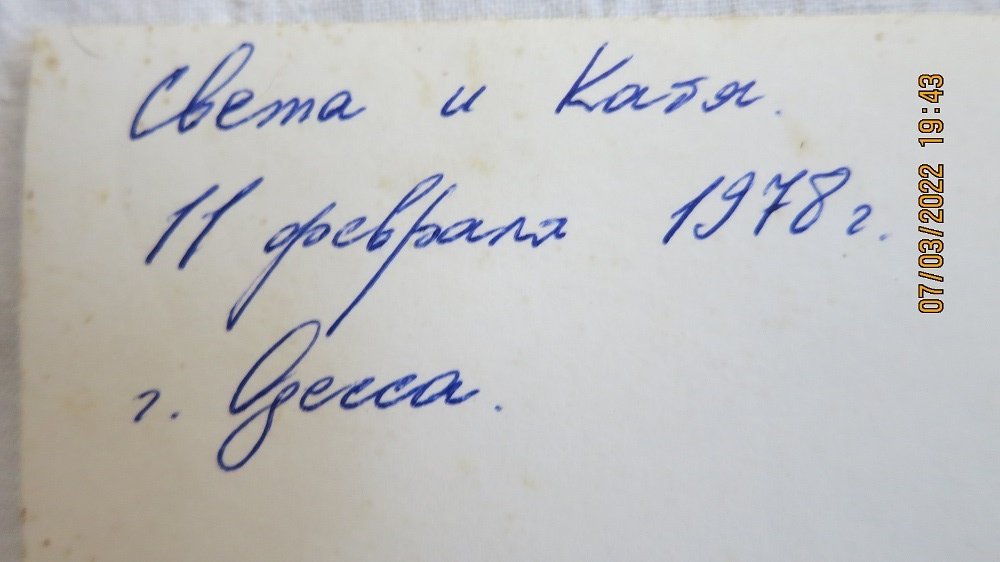 Света и Катя.
11 февраля 1978 г.
г. Одесса.
07/03/2022 19:43